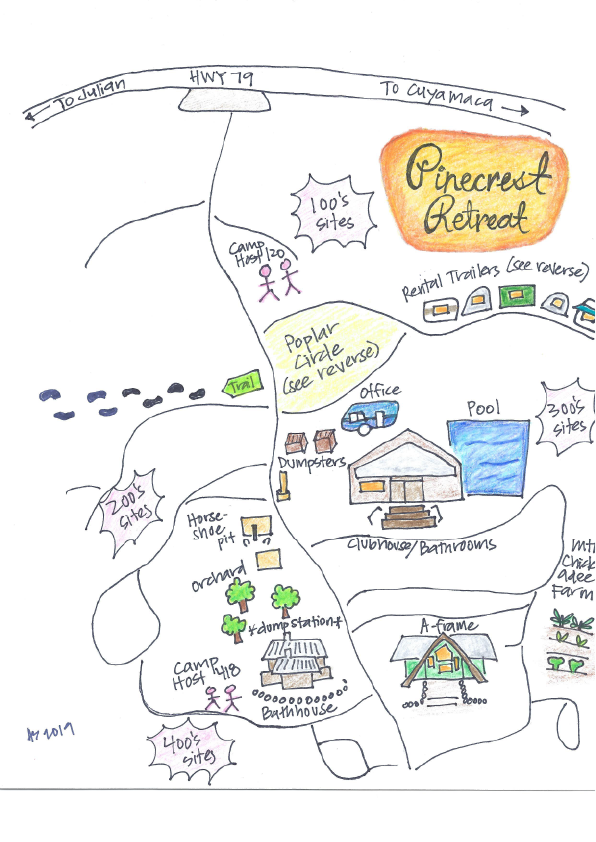 To Julian
HWY 79
To Cuyamaca
Pinecrest
Retreat
100's
sites
Camp
Host 120
Rental Trailers (see reverse)
Poplar
Circle
(see reverse)
Trail
Office
Pool
300's
sites
Dumpsters
200's
sites
Horse
shoe
pit
Clubhouse/Bathrooms
Orchard
Mtn
Chick
adee
Farm
*dumpstation*
A-frame
Camp
Host 418
Bathhouse
400's
sites
2019